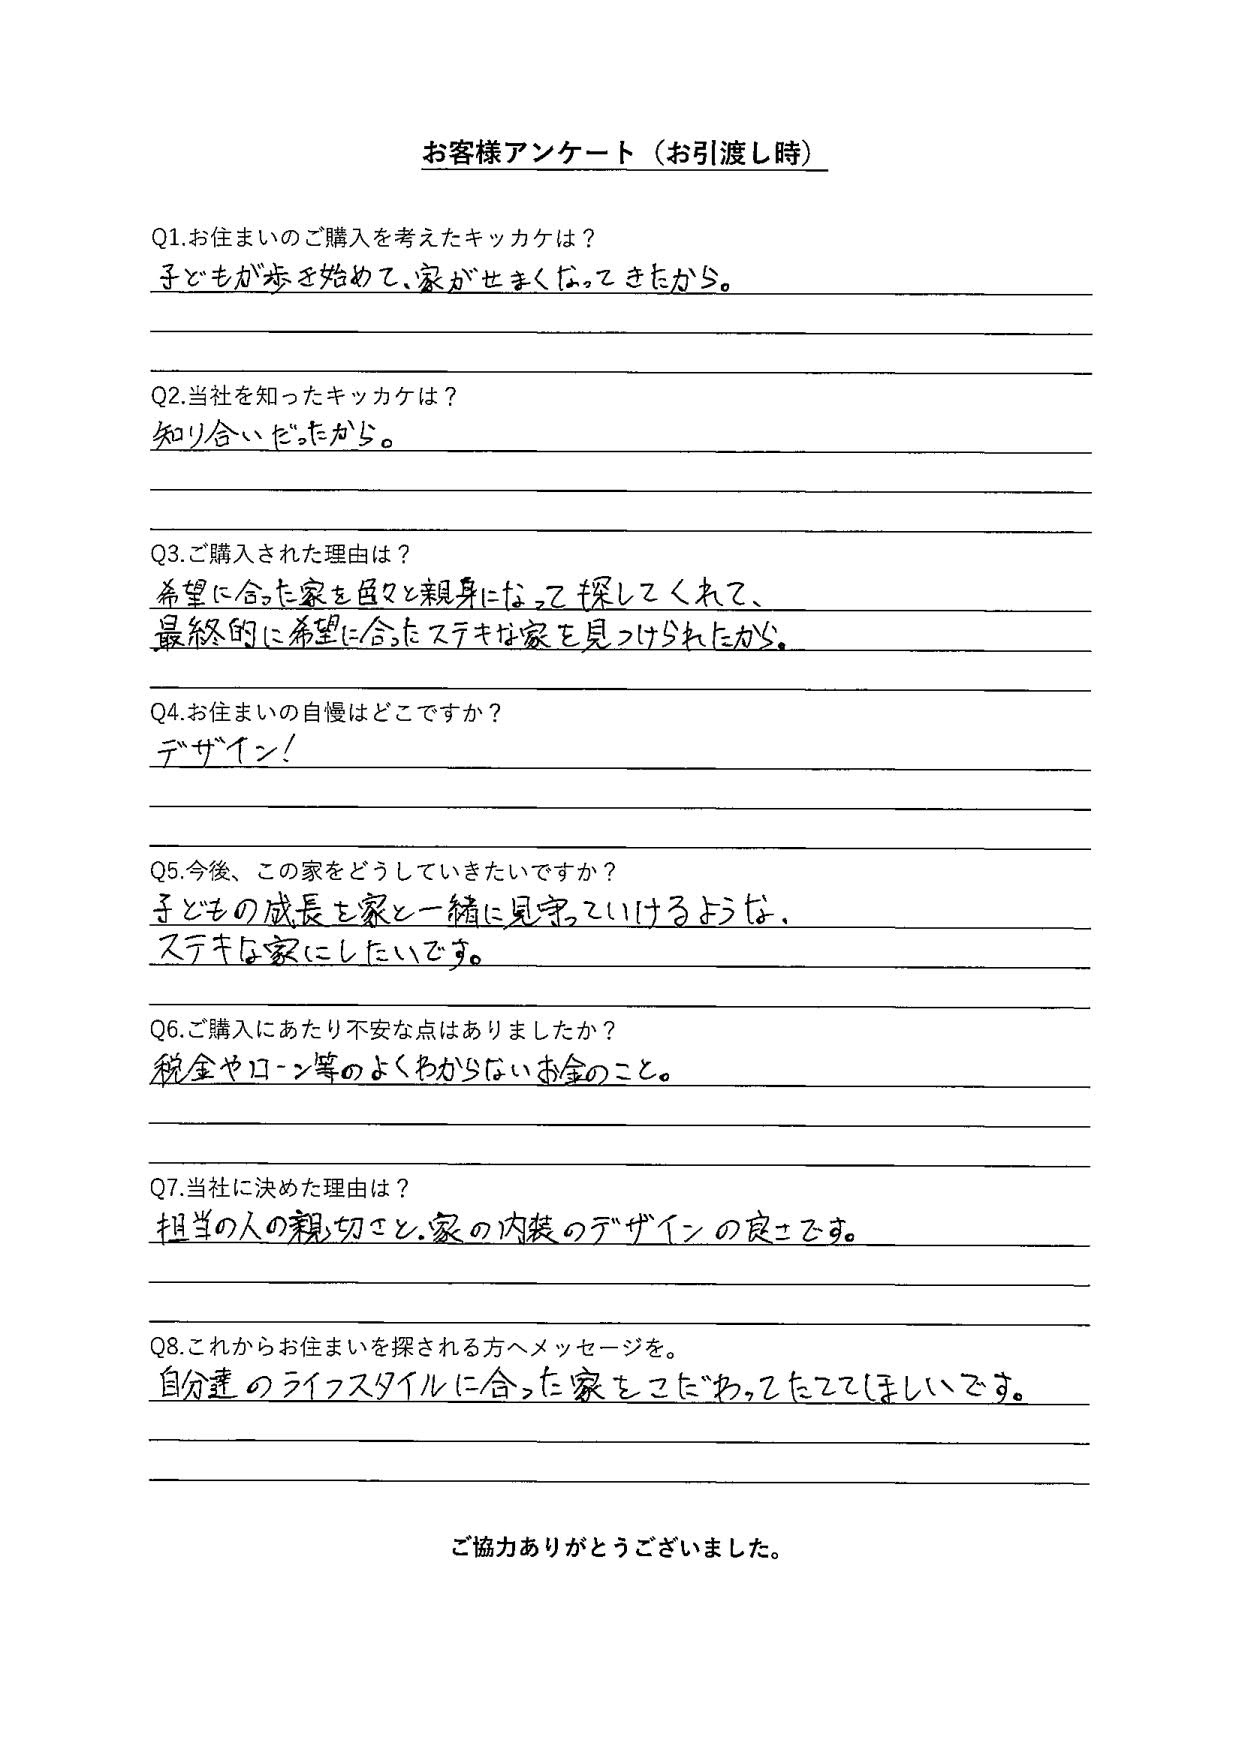 お客様アンケート（お引渡し時）
Q1.お住まいのご購入を考えたキッカケは？
子どもが歩き始めて、家がせまくなってきたから。
Q2.当社を知ったキッカケは？
知り合いだったから。
Q3.ご購入された理由は？
希望に合った家を色々と親身になって探してくれて、
最終的に希望に合ったステキな家を見つけられたから。
Q4.お住まいの自慢はどこですか？
デザイン！
Q5.今後、この家をどうしていきたいですか？
子どもの成長を家と一緒に見守っていけるような、
ステキな家にしたいです。
Q6.ご購入にあたり不安な点はありましたか？
税金やローン等のよくわからないお金のこと。
Q7.当社に決めた理由は？
担当の人の親切さと、家の内装のデザインの良さです。
Q8.これからお住まいを探される方へメッセージを。
自分達のライフスタイルに合った家をこだわってたててほしいです。
ご協力ありがとうございました。